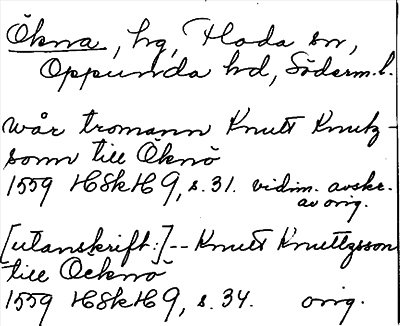 Ökna, hg, Floda sn,
Oppunda hd, Söderm.l.
wår tromann Knutt Knutz-
sonn till Öknö
1559 HSkH 9, s. 31. vidim. avskr.
av orig.
[utanskrift:]-- Knutt Knuttzsson
till Öcknö
1559 HSkH 9, s. 34. orig.